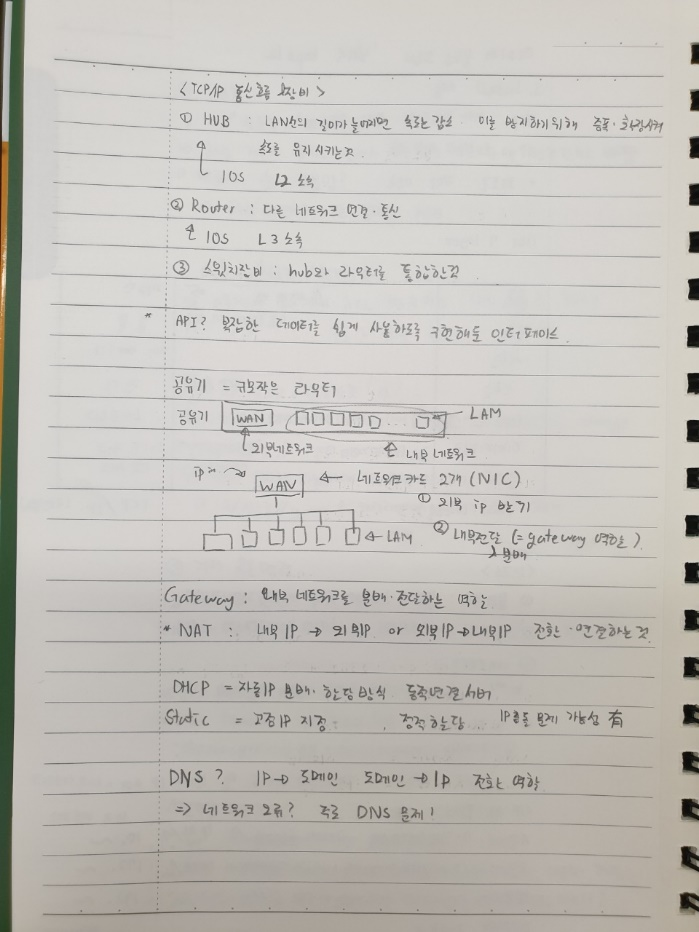 < TCP/IP 통신흐름 장비 >
① HUB : LAN선의 길이가 늘어지면 속도는 감소 이를 방지하기위해 증폭·확장시켜
속도를 유지시키는것
IOS L2 소속
② Router : 다른 네트워크 연결·통신
IOS L3 소속
③ 스위치장비 : hub와 라우터를 통합한것
* API? 복잡한 데이터를 쉽게 사용하도록 구현해둔 인터페이스
공유기 = 규모작은 라우터
공유기 WAN ... LAM
외부네트워크 내부 네트워크
ip WAN 네트워크카드 2개 (NIC)
① 외부 ip 받기
LAM ② 내부전달 (= gateway 역할)
분배
Gateway : 네트워크를 분배·전달하는 역할
* NAT : 내부IP → 외부IP or 외부IP → 내부IP 전환·연결하는 것
DHCP = 자동IP 분배·할당방식 동적연결서버
Static = 고정IP 지정 정적할당 IP충돌 문제 가능성 有
DNS ? IP → 도메인 도메인 → IP 전환 역할
=> 네트워크 오류? 주로 DNS 문제!